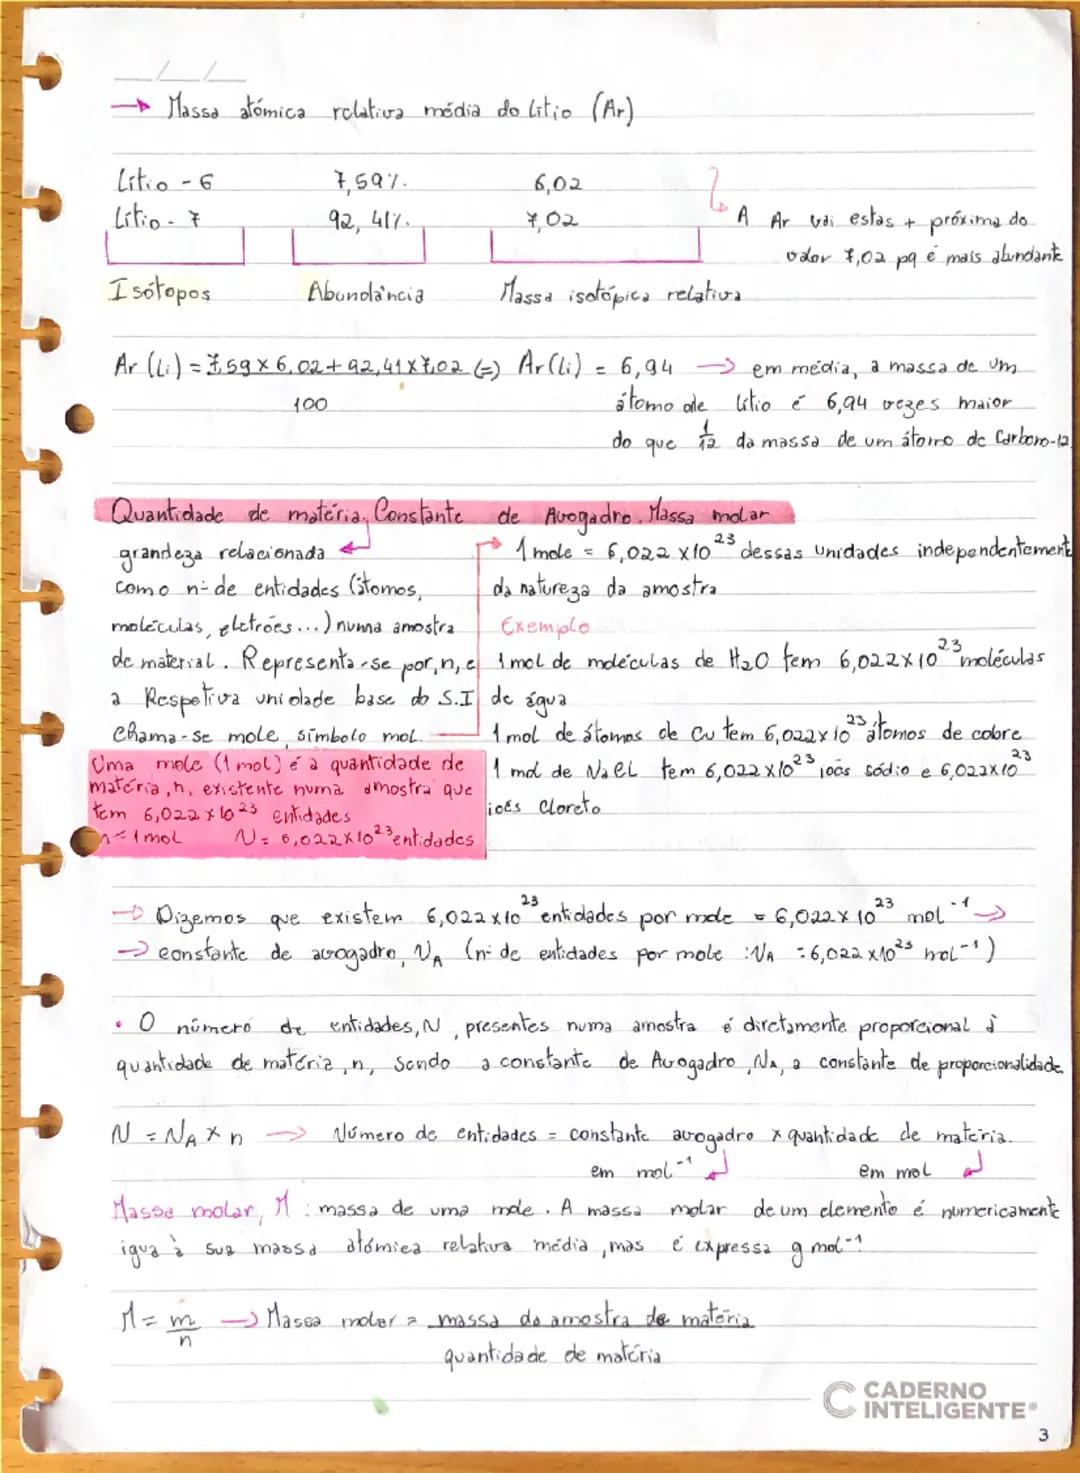 __/__/__
→ Massa atómica relativa média do Lítio (Ar)
Lítio - 6 7,59%. 6,02
Lítio - 7 92,41%. 7,02
A Ar vai estas + próxima do
valor 7,02 pq é mais abundante
Isótopos Abundância Massa isotópica relativa
Ar (Li) = 7,59 x 6,02 + 92,41 x 7,02 (=) Ar(Li) = 6,94 → em média, a massa de um
100 átomo de lítio é 6,94 vezes maior
do que 1/12 da massa de um átomo de Carbono-12
Quantidade de matéria, Constante de Avogadro. Massa molar
grandeza relacionada
como nº de entidades (átomos,
moléculas, eletrões...) numa amostra
de material. Representa-se por, n, e
a Respetiva unidade base do S.I
chama-se mole, símbolo mol.
Uma mole (1 mol) é a quantidade de
matéria, n, existente numa amostra que
tem 6,022 x 10²³ entidades
n = 1 mol N = 6,022 x 10²³ entidades
→ 1 mole = 6,022 x 10²³ dessas unidades independentemente
da natureza da amostra
Exemplo
1 mol de moléculas de H₂O tem 6,022 x 10²³ moléculas
de água
1 mol de átomos de Cu tem 6,022 x 10²³ átomos de cobre
1 mol de NaCl tem 6,022 x 10²³ iões sódio e 6,022 x 10²³
iões Cloreto
→ Dizemos que existem 6,022 x 10²³ entidades por mole = 6,022 x 10²³ mol⁻¹ →
→ constante de avogadro, NA (nº de entidades por mole : NA = 6,022 x 10²³ mol⁻¹)
• O número de entidades, N, presentes numa amostra é diretamente proporcional à
quantidade de matéria, n, sendo a constante de Avogadro, NA, a constante de proporcionalidade
N = NA x n → Número de entidades = constante avogadro x quantidade de matéria.
em mol⁻¹ em mol
Massa molar, M : massa de uma mole. A massa molar de um elemento é numericamente
igua à sua massa atómica relativa média, mas é expressa g mol⁻¹
M = m/n → Massa molar = massa da amostra de matéria
quantidade de matéria
CADERNO
INTELIGENTE®
3